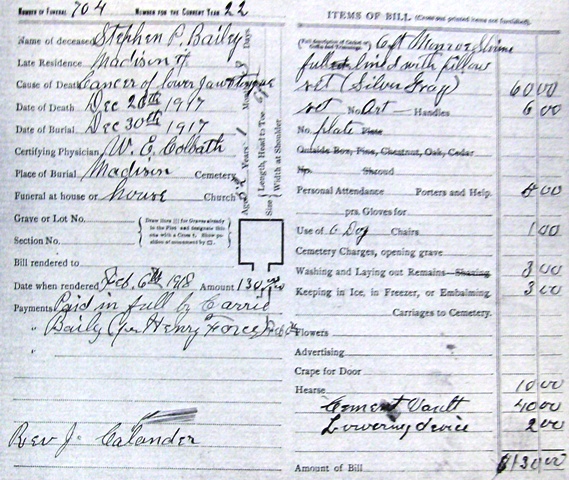 NUMBER OF FUNERAL 704 NUMBER FOR THE CURRENT YEAR 22
Name of deceased Stephen P. Baily
Late Residence Madison
Cause of Death Cancer of lower Jaw & tongue
Date of Death Dec 28th 1917
Date of Burial Dec 30th 1917
Certifying Physician W. E. Colbath
Place of Burial Madison Cemetery
Funeral at house or house Church
Grave or Lot No.
Section No.
Bill rendered to
Date when rendered Feb. 6th 1918 Amount 130.00
Payments Paid in full by Carrie
" Baily (per Henry Force)
"
Rev J. Calander
Age Years Months Days
Size { Length, Head to Toe
Width at Shoulder
ITEMS OF BILL (Cross out printed items not furnished).
6ft Monroe
lined with pillow
set (Silver Gray) 60 00
set No. Art Handles 6 00
No. plate Plate
Outside Box, Pine, Chestnut, Oak, Cedar
No. Shroud
Personal Attendance Porters and Help. 5 00
prs. Gloves for
Use of 6 Doz Chairs 1 00
Cemetery Charges, opening grave
Washing and Laying out Remains—Shaving 3 00
Keeping in Ice, in Freezer, or Embalming. 3 00
Carriages to Cemetery.
Flowers
Advertising
Crape for Door
Hearse 10 00
Cement Vault 40 00
Lowering device 2 00
Amount of Bill $130 00